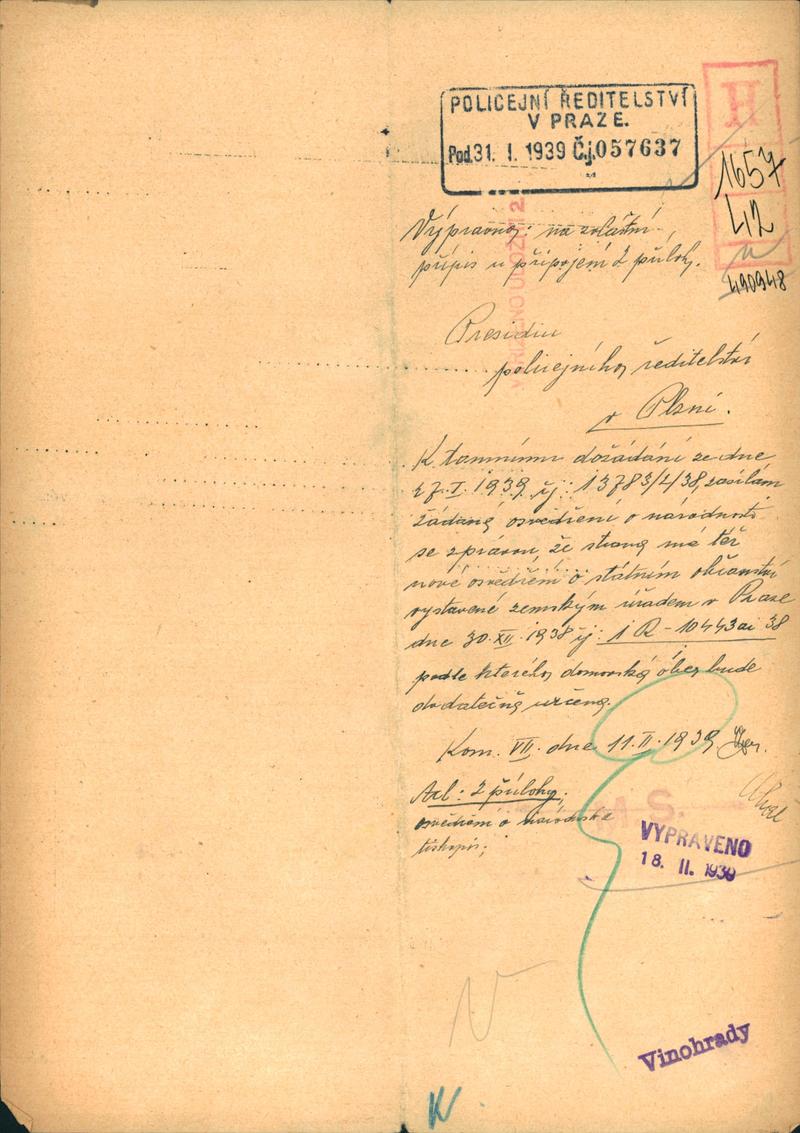 POLICEJNÍ ŘEDITELSTVÍ
V PRAZE.
Pod. 31. I. 1939 Č.j. 057637
H
1657
42
490948
Výpravna: na zvláštní
přípis u připojení 2 příloh.
Presidiu
policejního ředitelství
v Plzni.
K tamnímu dožádání ze dne
27. I. 1939 čj: 13783/2/38, zasílám
žádané osvědčení o národnosti
se zprávou, že strana má též
nové osvědčení o státním občanství
vystavené zemským úřadem v Praze
dne 30. XII. 1938 čj: 1 R - 10443 ai 38
podle kterého domovská obec bude
dodatečně určena.
Kom. VII. dne 11. II. 1939
Axl: 2 přílohy.
osvědčení o národnosti
tiskopis;
M S.
VYPRAVENO
18. II. 1939
Vinohrady
K